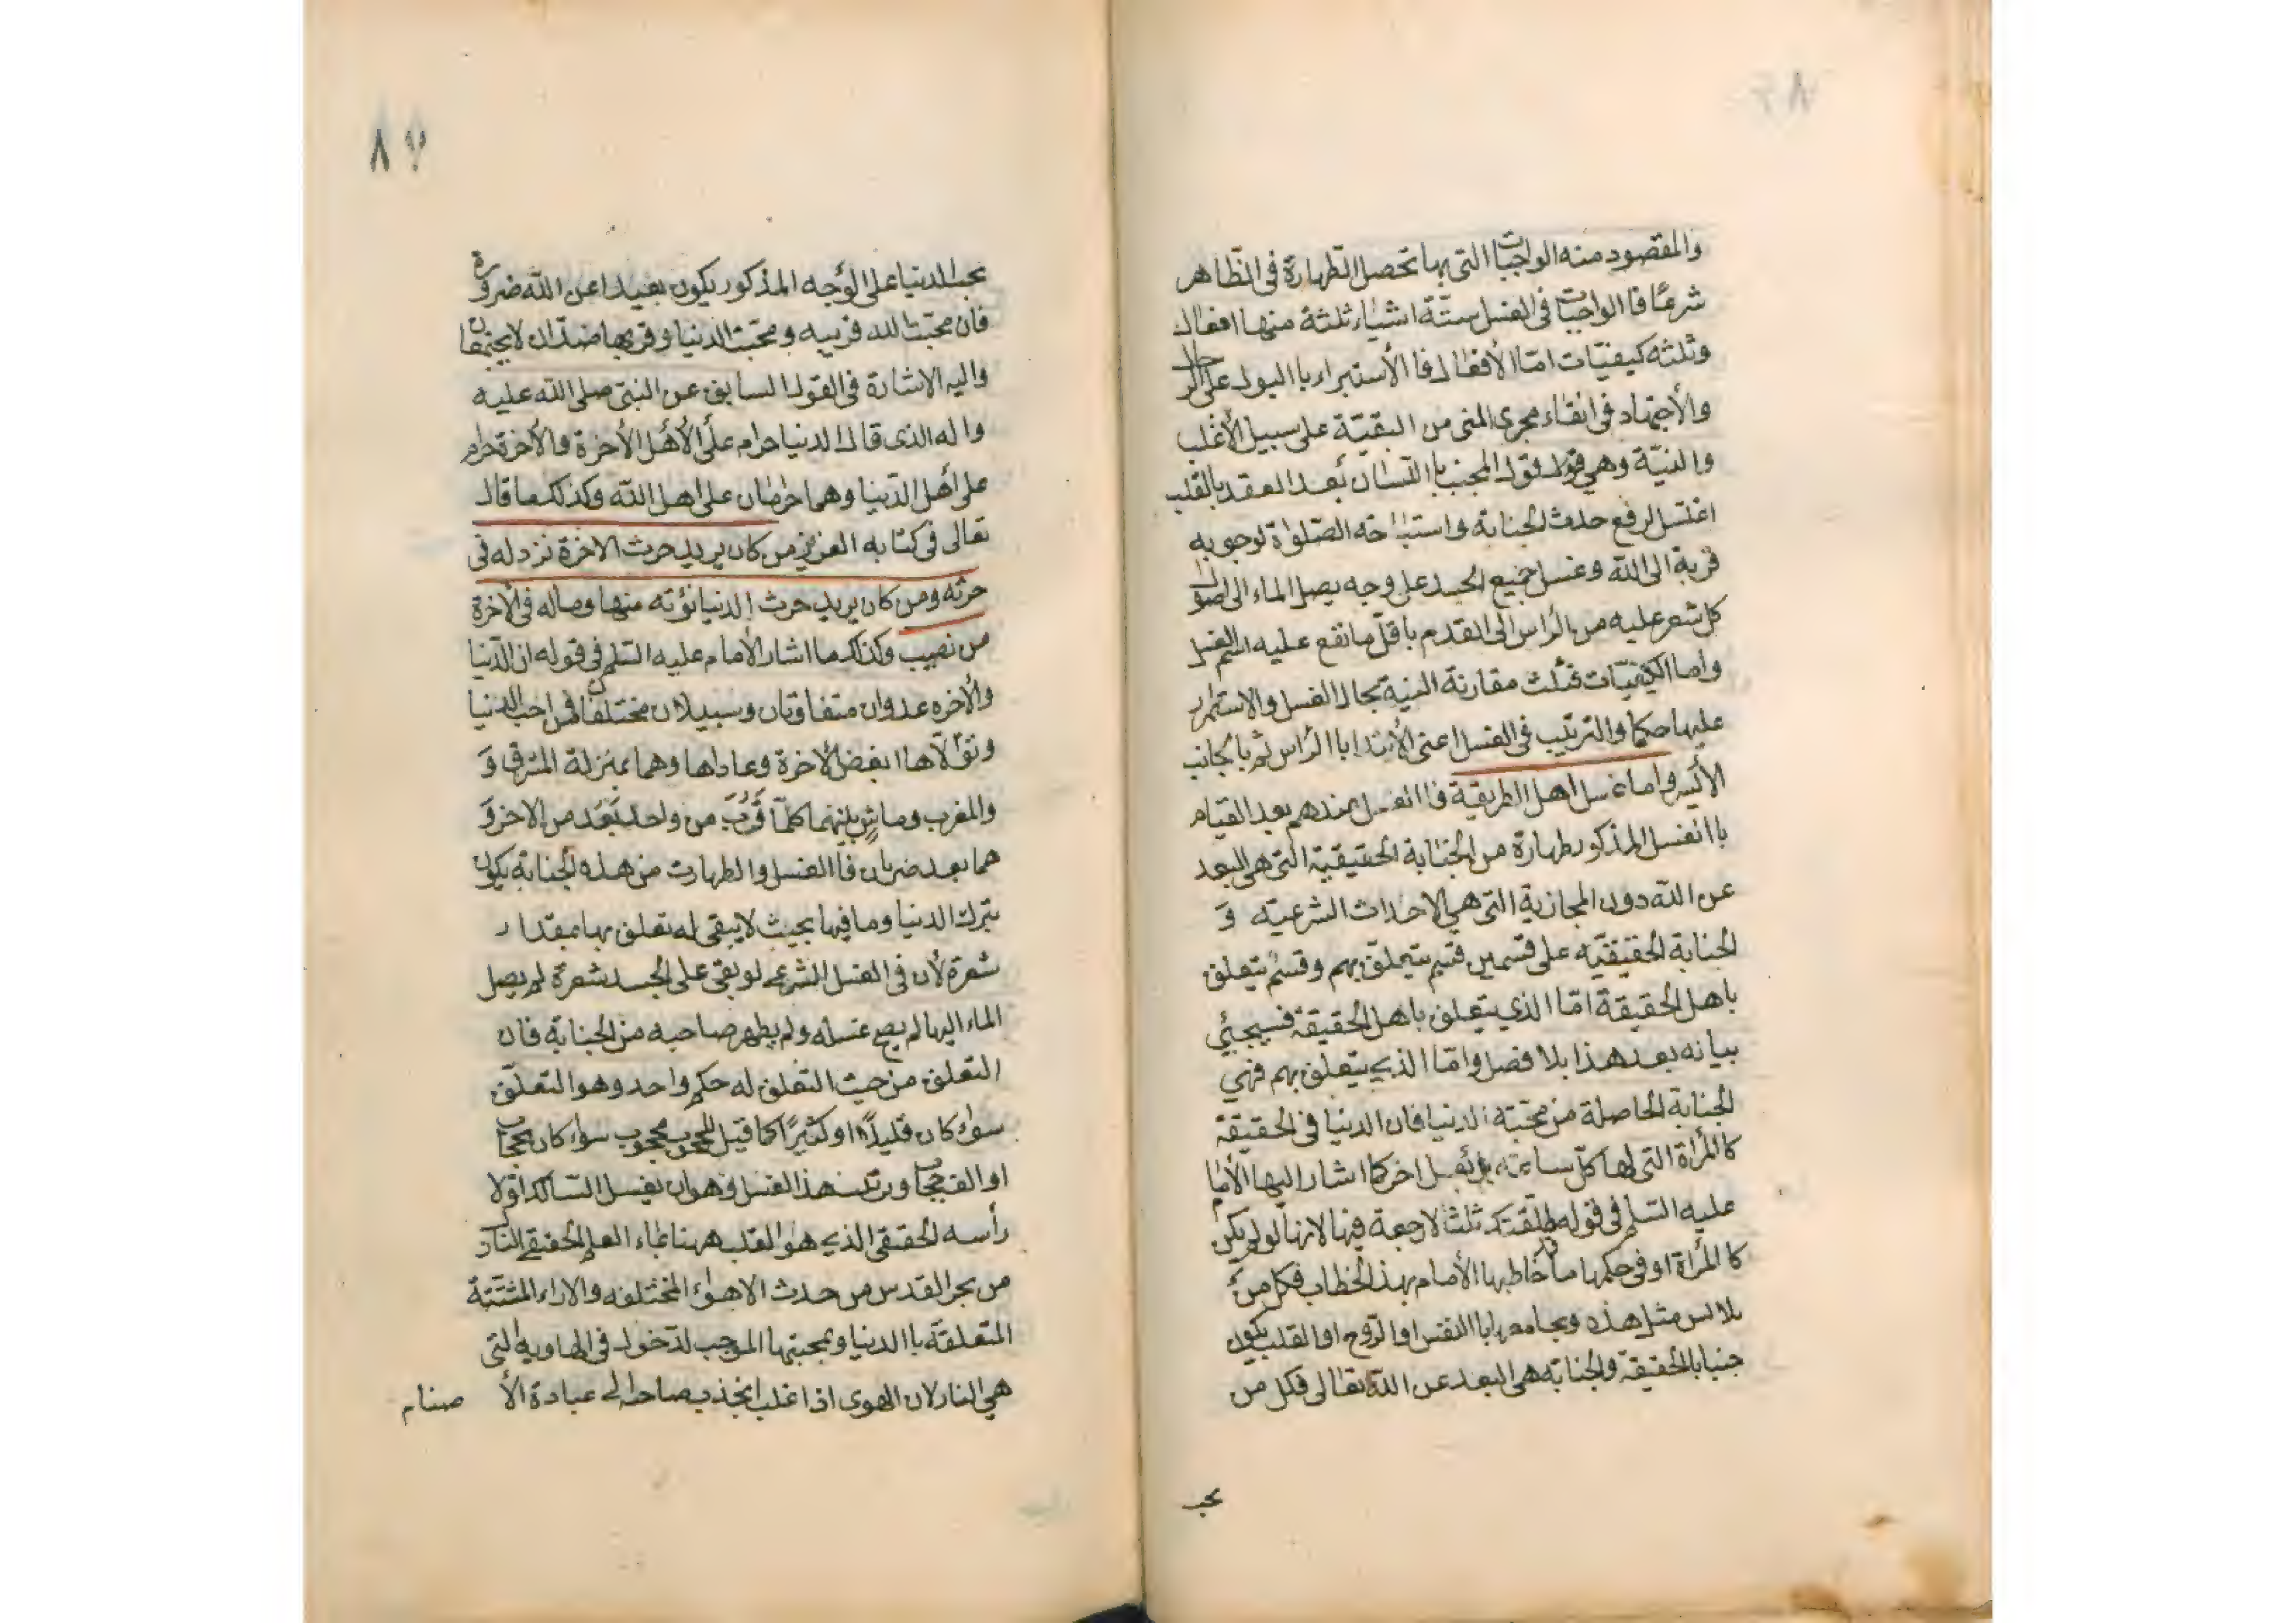 والمقصود منه الواجبات التي بها تحصل الطهارة في الظاهر
شرعًا فا الواجبات في الغسل ستة اشياء ثلثة منها افعال
وثلثه كيفيّات امّا الأفعال فا الأستبراء با البول على الرجال
والأجتهاد في انقاء مجرى المنى من البقيّة على سبيل الأغلب
والنيّة وهي قول المجنب باللسان بعد العقد بالقلب
اغتسل لرفع حدث الجنابة واستباحة الصّلوة لوجوبه
قربة الى الله وغسل جميع الجسد على وجه يصل الماء الى اصول
كل شعر عليه من الرأس الى القدم باقلّ ما تقع عليه اسم الغسل
واما الكيفيّات فثلث مقارنة النية بحال الغسل والاستمرار
عليها حكما والترتيب في الغسل اعنى الأبتدا با الرأس ثم با لجانب
الأيسر واما غسل اهل الطريقية فا الغسل عندهم بعد القيام
با الغسل المذكور طهارة من الجنابة الحقيقية التي هي البعد
عن الله دون المجازية التي هي الاحداث الشرعيّه و
الجنابة الحقيقيّه على قسمين قسم يتعلّق بهم وقسم يتعلق
باهل الحقيقة امّا الذي يتعلق باهل الحقيقة فسيجئي
بيانه بعد هذا بلا فصل وامّا الذي يتعلق بهم فهي
الجنابة الحاصلة من محبّته الدنيا فان الدنيا في الحقيقة
كالمرأة التي لها كلّ ساعة بعل اخر كما اشار اليها الأمام
عليه السلم في قوله طلقتك ثلثا لا رجعة فيها لانها لو لم يكن
كا المرأة او في حكمها ما خاطبها الأمام بهذا الخطاب فكل من
يلابس مثل هذه ويجامعها با النفس او الرّوح او القلب يكون
جنبا بالحقيقة والجنابة هي البعد عن الله تعالى فكل من
يحب
٨٧
يحب الدنيا على الوجه المذكور يكون بعيدا عن الله ضرورة
فان محبّت الله قربه ومحبّت الدنيا وقربها ضدّان لا يجتمعان
واليه الاشارة في القول السابق عن النبي صلى الله عليه
واله الذي قال الدنيا حرام على الأهل الأخرة والأخرة حرام
على أهل الدّنيا وهما حرامان على اهل الله وكذلك ما قال
تعالى في كتابه العزيز من كان يريد حرث الاخرة نزد له في
حرثه ومن كان يريد حرث الدنيا نؤته منها وماله في الأخرة
من نصيب وكذلك ما اشار الأمام عليه السّلم في قوله ان الدّنيا
والأخره عدوان متفاوتان وسبيلان مختلفان فمن احب الدنيا
وتولّاها ابغض الأخرة وعاداها وهما بمنزلة المشرق و
والمغرب وماشٍ بينهما كلّما قرُبَ من واحد بَعُد من الاخر و
هما بعد ضرّتان فا الغسل والطهارت من هذه الجنابة يكون
بترك الدنيا وما فيها بحيث لا يبقى له تعلق بها بمقدار
شعرة لأن في الغسل الشرعي لو بقى على الجسد شعرة لم يصل
الماء اليها لم يصح غسله ولم يطهر صاحبه من الجنابة فان
التعلق من حيث التعلق له حكم واحد وهو التعلّق
سواء كان قليلاً او كثيرًا كما قيل المحجوب محجوب سواء كان بحجاب
او الف حجاب وترتيب هذا الغسل فهو ان يغسل السّالك اوّلا
رأسه الحقيقي الذي هو القلب ههنا بماء العلم الحقيقي النازل
من بحر القدس من حدث الاهواء المختلفه والاراء المشتتة
المتعلقة با الدنيا وبمحبتها الموجب لدخول في الهاويه التي
هي النار لان الهوى اذا غلب انجذب صاحبه الى عبادة الأ صنام